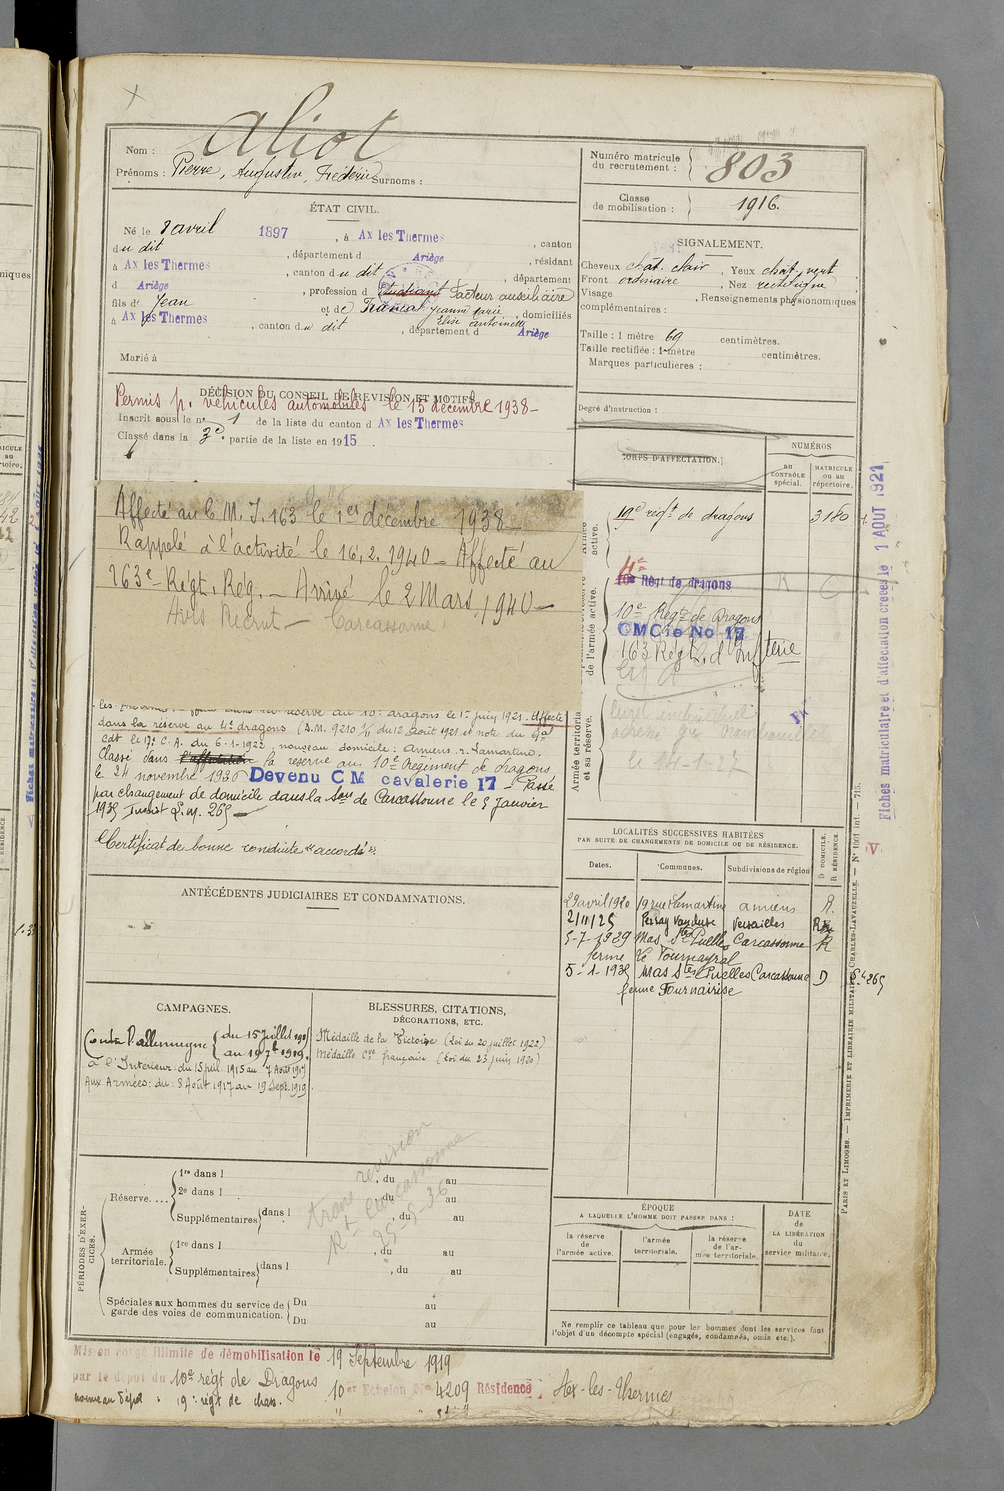 Aliot
Nom :
Prénoms : Pierre, Augustin, Frédéric Surnoms :
ÉTAT CIVIL.
Né le 8 avril 1897, à Ax les Thermes, canton
du dit, département d Ariège, résidant
à Ax les Thermes, canton du dit, département
d Ariège, profession d étudiant Facteur auxiliaire
fils de Jean et de Francal Jeanne Marie Elise Antoinette domiciliés
à Ax les Thermes, canton du dit, département d Ariège
Marié à
DÉCISION DU CONSEIL DE REVISION ET MOTIFS
Permis p. véhicules automobiles le 15 décembre 1938 -
Inscrit sous le n° 1 de la liste du canton d Ax les Thermes
Classé dans la 3e partie de la liste en 1915
Affecté au C.M.I. 163 le 1er décembre 1938 -
Rappelé à l'activité le 16.2.1940 - Affecté au
163e Régt. Rég. - Arrivé le 2 Mars 1940 -
Avis Recrut - Carcassonne
réserve au 10e dragons le 1er juin 1921. Affecté
dans la réserve au 4e dragons (D.M. 9210 1/11 du 12 Août 1921 et note du Gal
cdt le 17e C.A. du 6-1-1922, nouveau domicile : Amiens, r. Lamartine.
Classé dans l'affectation la réserve au 10e Régiment de dragons
le 24 novembre 1930 Devenu CM cavalerie 17 - Passé
par changement de domicile dans la Son de Carcassonne le 5 Janvier
1935
Certificat de bonne conduite "accordé".
ANTÉCÉDENTS JUDICIAIRES ET CONDAMNATIONS.
CAMPAGNES.
Contre l'Allemagne { du 15 Juillet 1915
au 19 7bre 1919.
à l'Intérieur : du 15 juil. 1915 au 7 Août 1917
Aux Armées : du : 8 Août 1917 au 19 Sept. 1919
BLESSURES, CITATIONS,
DÉCORATIONS, ETC.
Médaille de la Victoire (Loi du 20 juillet 1922)
Médaille Cve française (Loi du 23 juin 1920)
PÉRIODES D'EXERCICES.
Réserve....
1re dans l , du au
2e dans l , du au
Supplémentaires dans l , du au
Armée territoriale.
1re dans l , du au
Supplémentaires dans l , du au
Spéciales aux hommes du service de garde des voies de communication.
Du au
Du au
trans revision
Rt Carcassonne
25-5-36
Mis en congé illimité de démobilisation le 19 Septembre 1919
par le dépôt du 10e régt de Dragons 10 er Echelon No 4209 Résidence : Ax-les-Thermes
nouveau dépôt : 19e régt de chass.
Numéro matricule
du recrutement : 803
Classe
de mobilisation : 1916.
SIGNALEMENT.
Cheveux chât. clair, Yeux chât. vert
Front ordinaire, Nez rectiligne
Visage , Renseignements physionomiques
complémentaires :
Taille : 1 mètre 69 centimètres.
Taille rectifiée : 1 mètre centimètres.
Marques particulières :
Degré d'instruction :
CORPS D'AFFECTATION.
NUMÉROS
au CONTRÔLE spécial.
MATRICULE ou au répertoire.
19e régt de dragons 3180
4e
10e Régt de dragons
10e Régt de Dragons
CMCie No 17
163 Régt. d'Infterie
le 14-1-27
Armée territoriale et sa réserve.
Fiches matriculaire et d'affectation créées le 1 AOUT 1921
LOCALITÉS SUCCESSIVES HABITÉES
PAR SUITE DE CHANGEMENTS DE DOMICILE OU DE RÉSIDENCE.
Dates. Communes. Subdivisions de région D DOMICILE. R RÉSIDENCE.
29 avril 1920 19 rue Lamartine Amiens R.
2/11/25 Perray Vaucluse Versailles R
5-7-1929 Mas Stes Puelles Carcassonne R
ferme le Tournayral
5-1-1935 Mas Stes Puelles Carcassonne D
ferme Fournairise
ÉPOQUE
A LAQUELLE L'HOMME DOIT PASSER DANS :
la réserve de l'armée active.
l'armée territoriale.
la réserve de l'armée territoriale.
DATE
de
LA LIBÉRATION
du
service militaire.
Ne remplir ce tableau que pour les hommes dont les services font
l'objet d'un décompte spécial (engagés, condamnés, omis, etc.).
PARIS ET LIMOGES. — IMPRIMERIE ET LIBRAIRIE MILITAIRES CHARLES-LAVAUZELLE. — N° 1001 int. — 715.